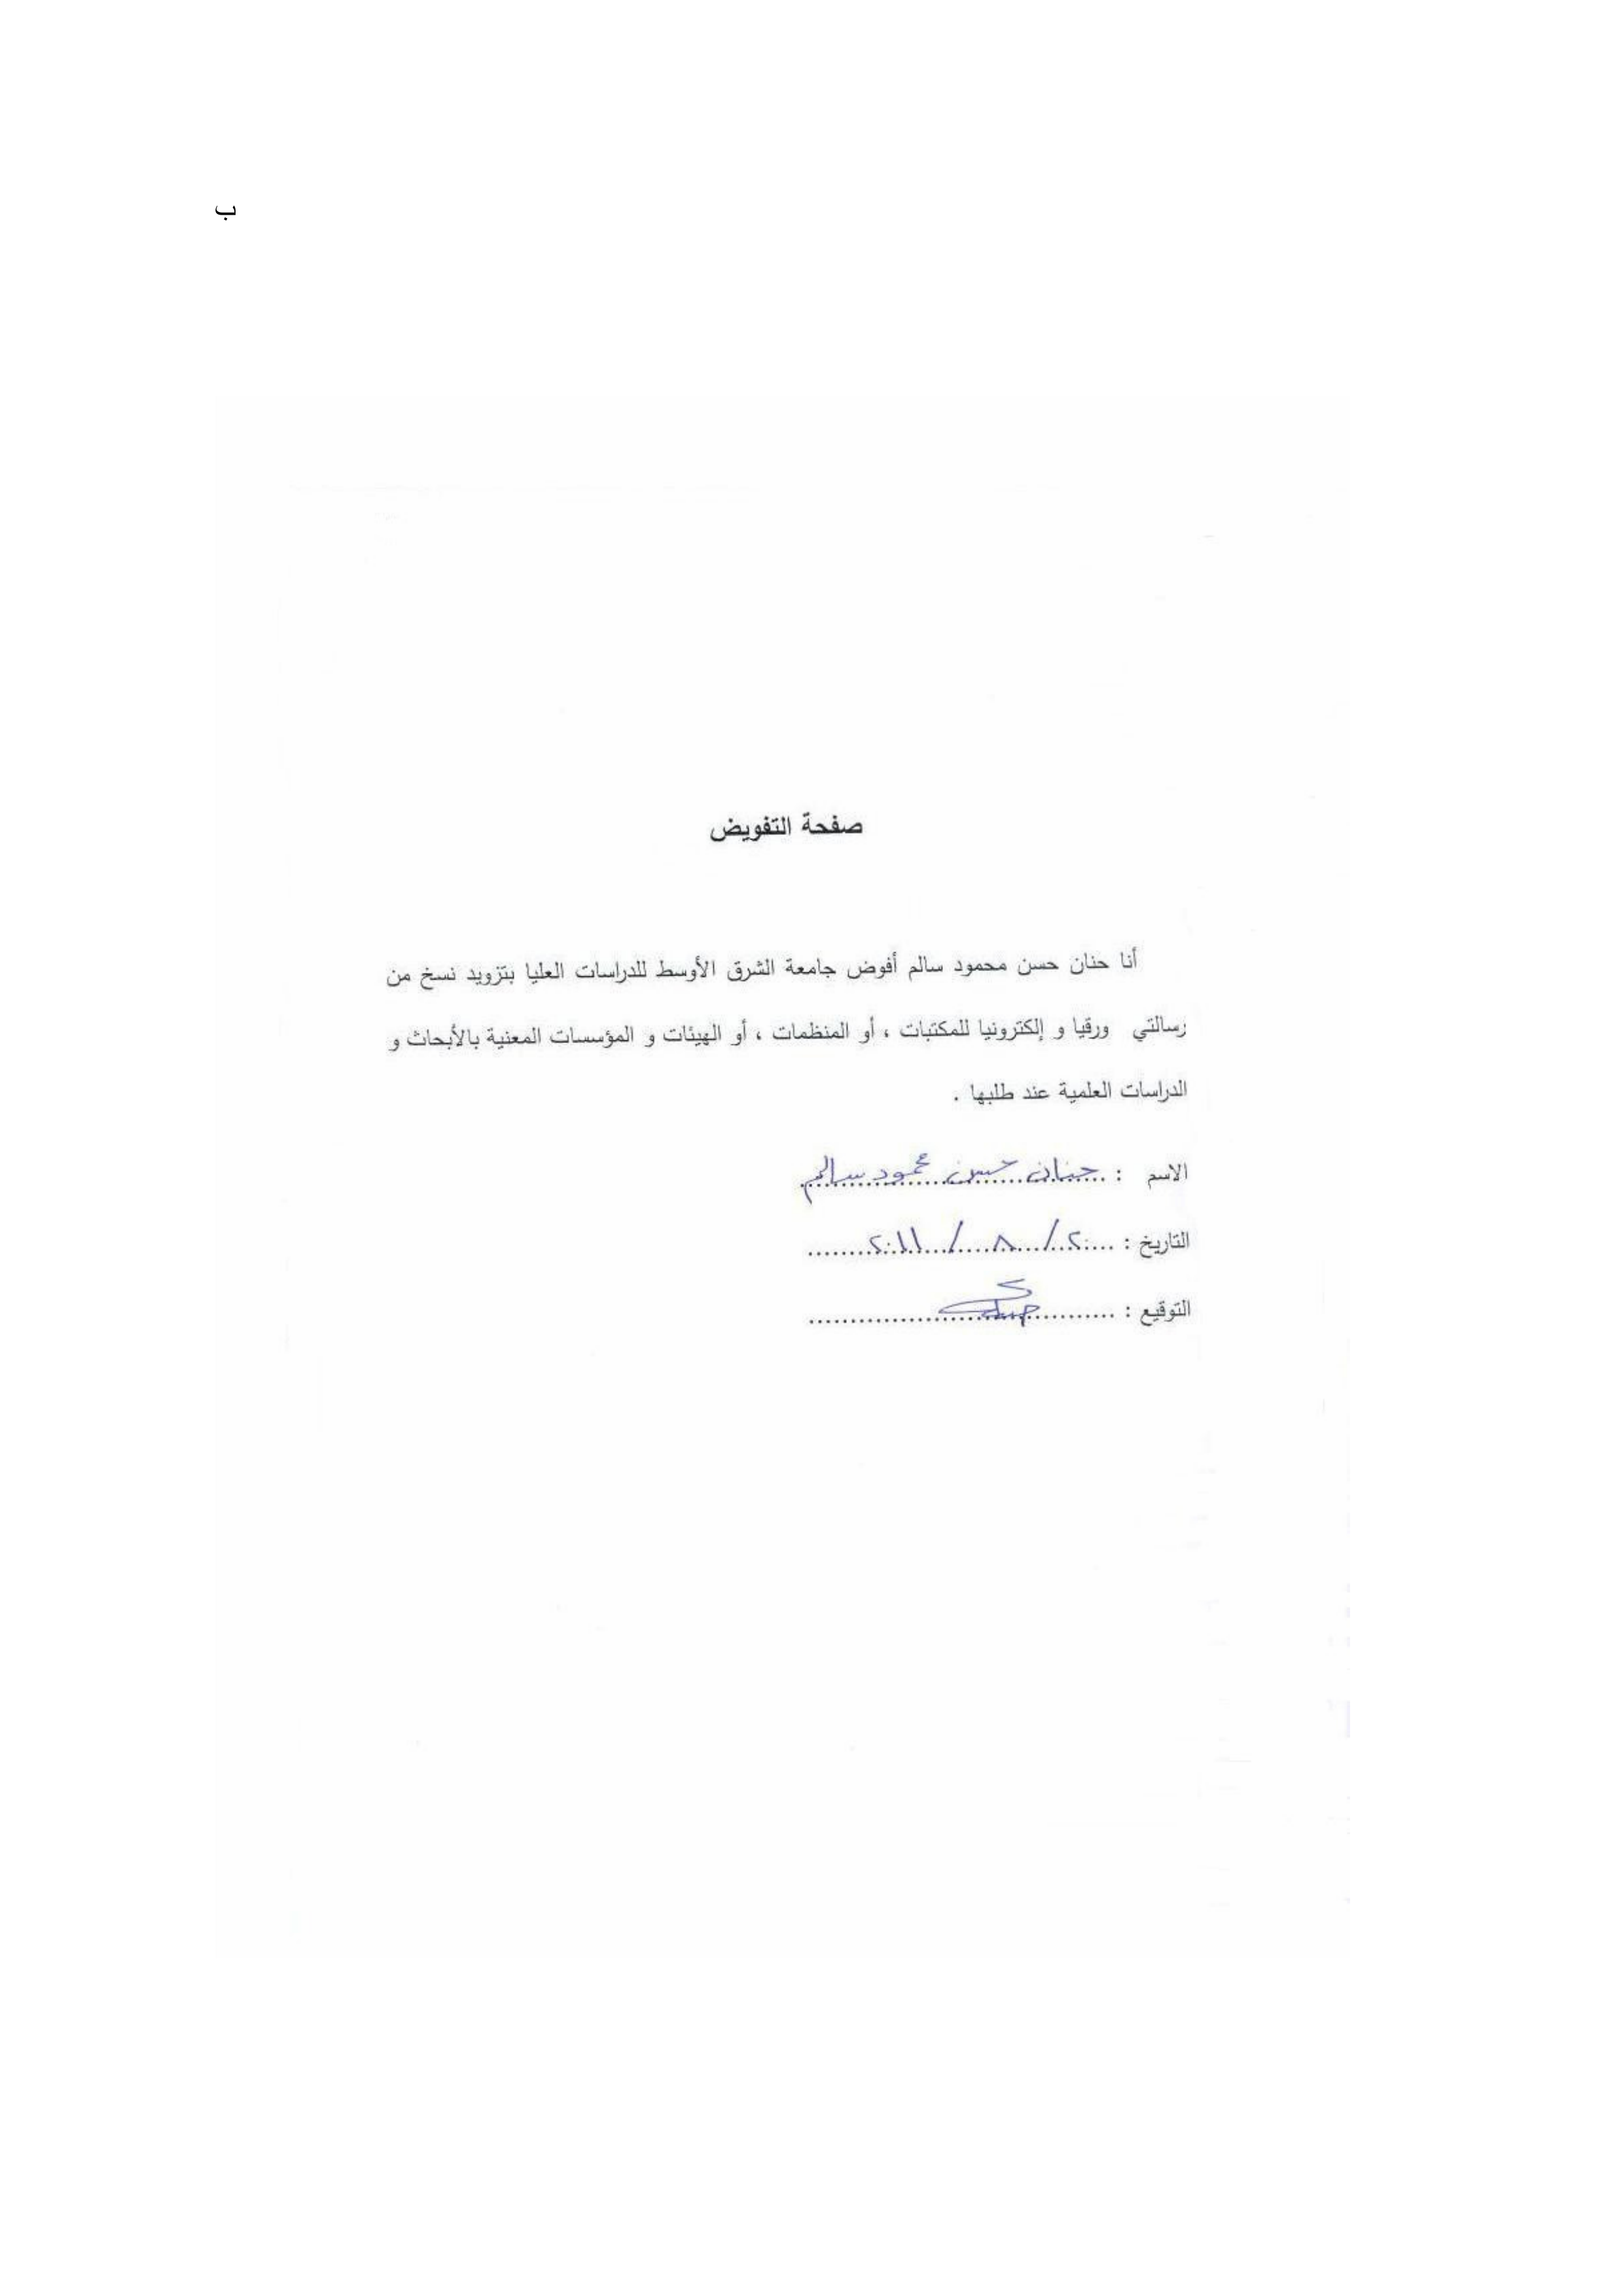 ب
صفحة التفويض
أنا حنان حسن محمود سالم أفوض جامعة الشرق الأوسط للدراسات العليا بتزويد نسخ من
رسالتي ورقيا و إلكترونيا للمكتبات ، أو المنظمات ، أو الهيئات و المؤسسات المعنية بالأبحاث و
الدراسات العلمية عند طلبها .
الاسم : حنان حسن محمود سالم
التاريخ : ٢٠ / ٨ / ٢٠١١
التوقيع :